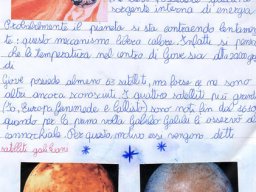 sorgente interna di energia
Probabilmente il pianeta si sta contraendo lentamen
te; questo meccanismo libera calore. Infatti si pensa
che la temperatura nel centro di Giove sia
di
Giove possiede almeno satelliti, ma forse ce ne sono
altri ancora sconosciuti. I quattro satelliti più grandi
(Io, Europa, Ganimede e Callisto) sono noti fin dal 1610
quando per la prima volta Galileo Galilei li osservò al
cannocchiale. Per questo motivo essi vengono detti
satelliti galileiani